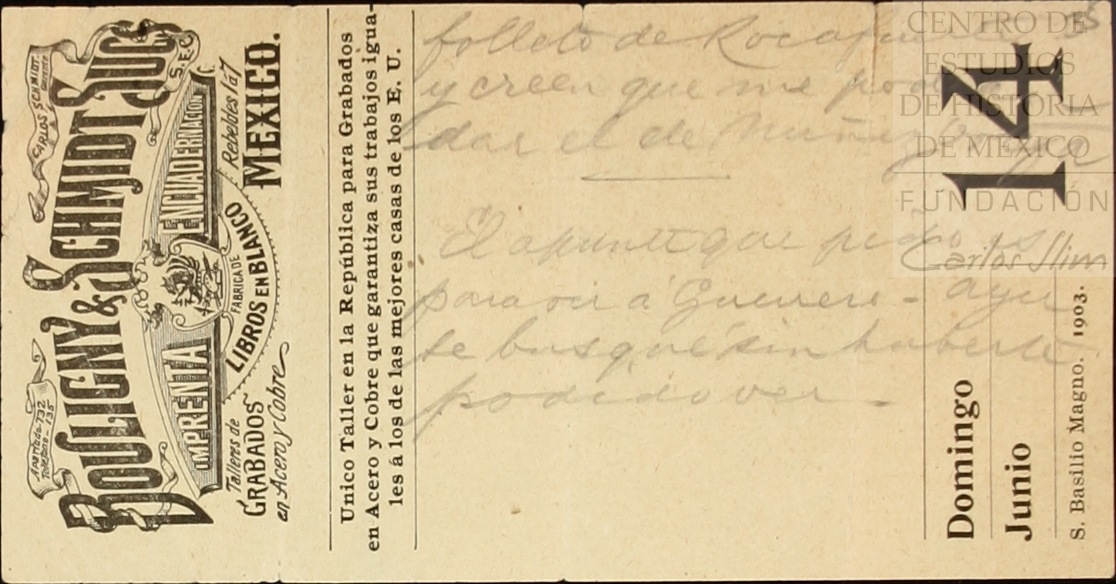 CARLOS SCHMIDT.
Gerente
Apartado-732
Telefono-135
BOULIGNY & SCHMIDT SUCS
S. EN C.
IMPRENTA
ENCUADERNACION
FABRICA DE
LIBROS EN BLANCO
Talleres de
GRABADOS
en Acero y Cobre
Rebeldes 1 a 7
MEXICO.
Unico Taller en la República para Grabados
en Acero y Cobre que garantiza sus trabajos igua-
les á los de las mejores casas de los E. U.
folleto de
y creen que me
dar el de Muñoz
El apunte que pido es
para ver á Guerrero - ayer
le busqué sin haberle
podido ver -
14
Domingo
Junio
S. Basilio Magno. 1903.
CENTRO DE
ESTUDIOS
DE HISTORIA
DE MÉXICO
FUNDACIÓN
Carlos Slim